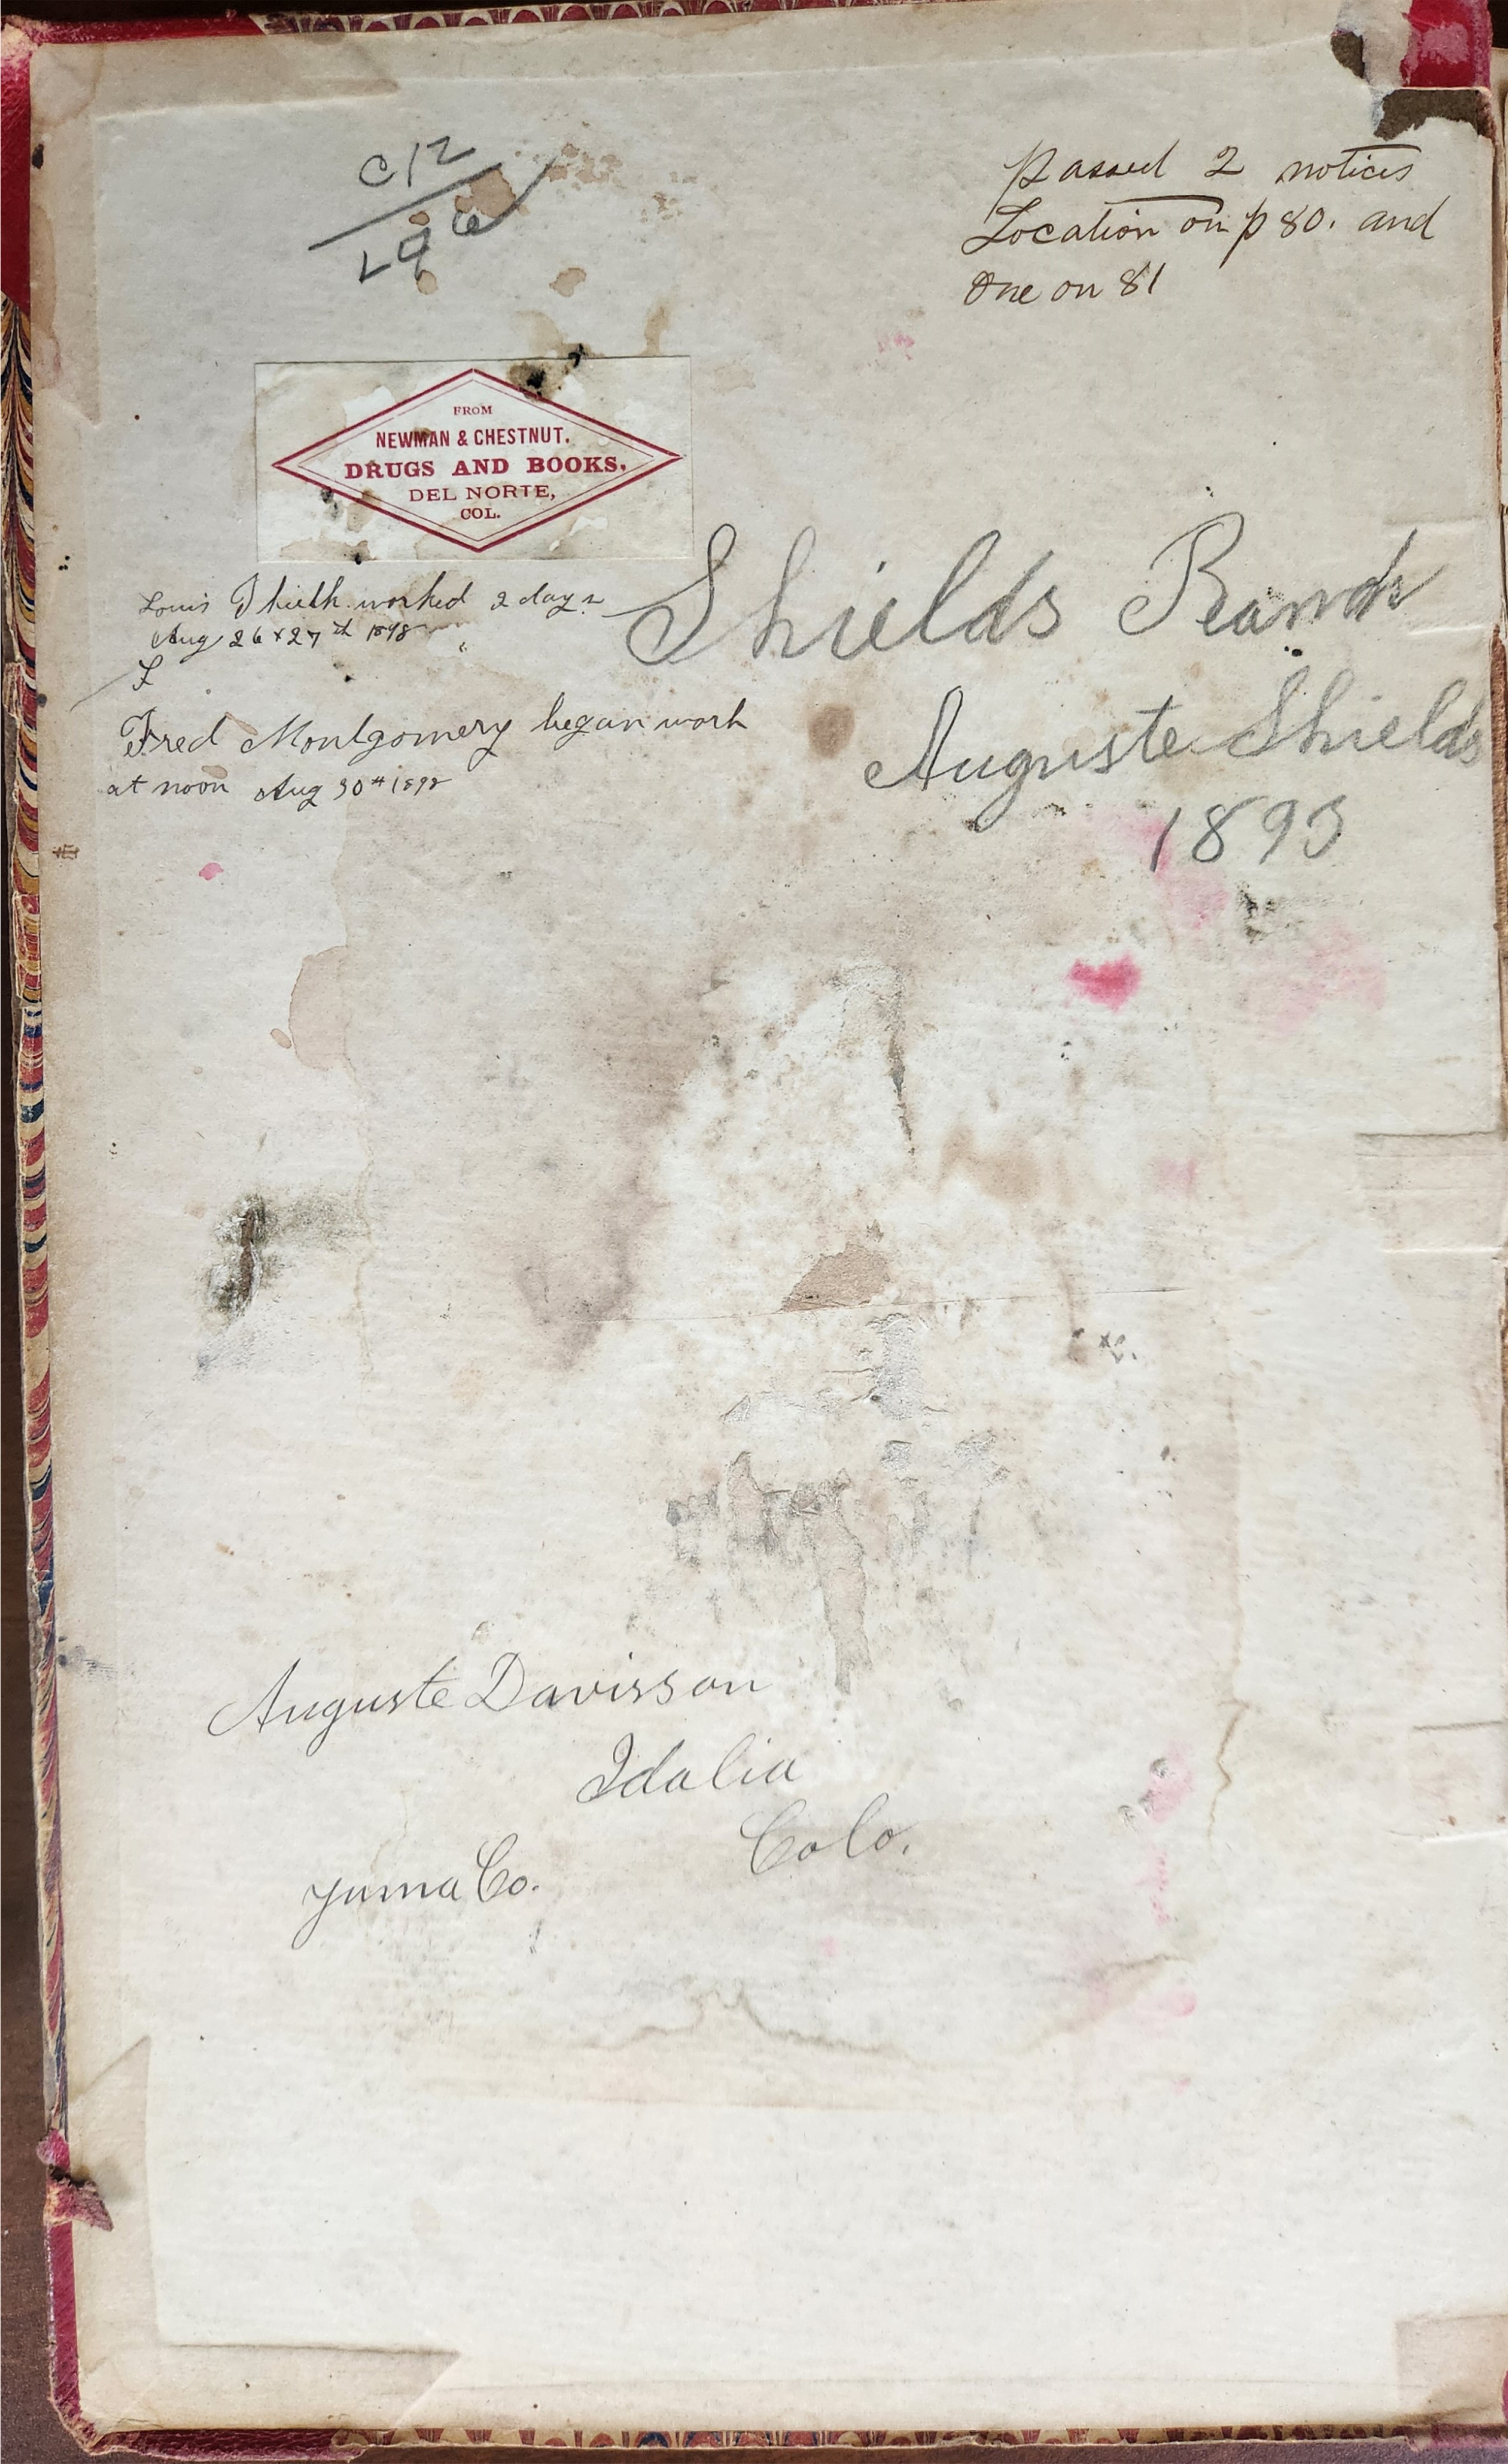 C12
196
Passed 2 notices
Location on p 80. and
One on 81
FROM
NEWMAN & CHESTNUT.
DRUGS AND BOOKS,
DEL NORTE,
COL.
Louis worked 2 days
Aug 26 & 27th 1898
F
Shields Ranch
Auguste Shields
1893
Fred Montgomery began work
at noon Aug 30th 1898
Auguste Davisson
Idalia
Colo.
Yuma Co.